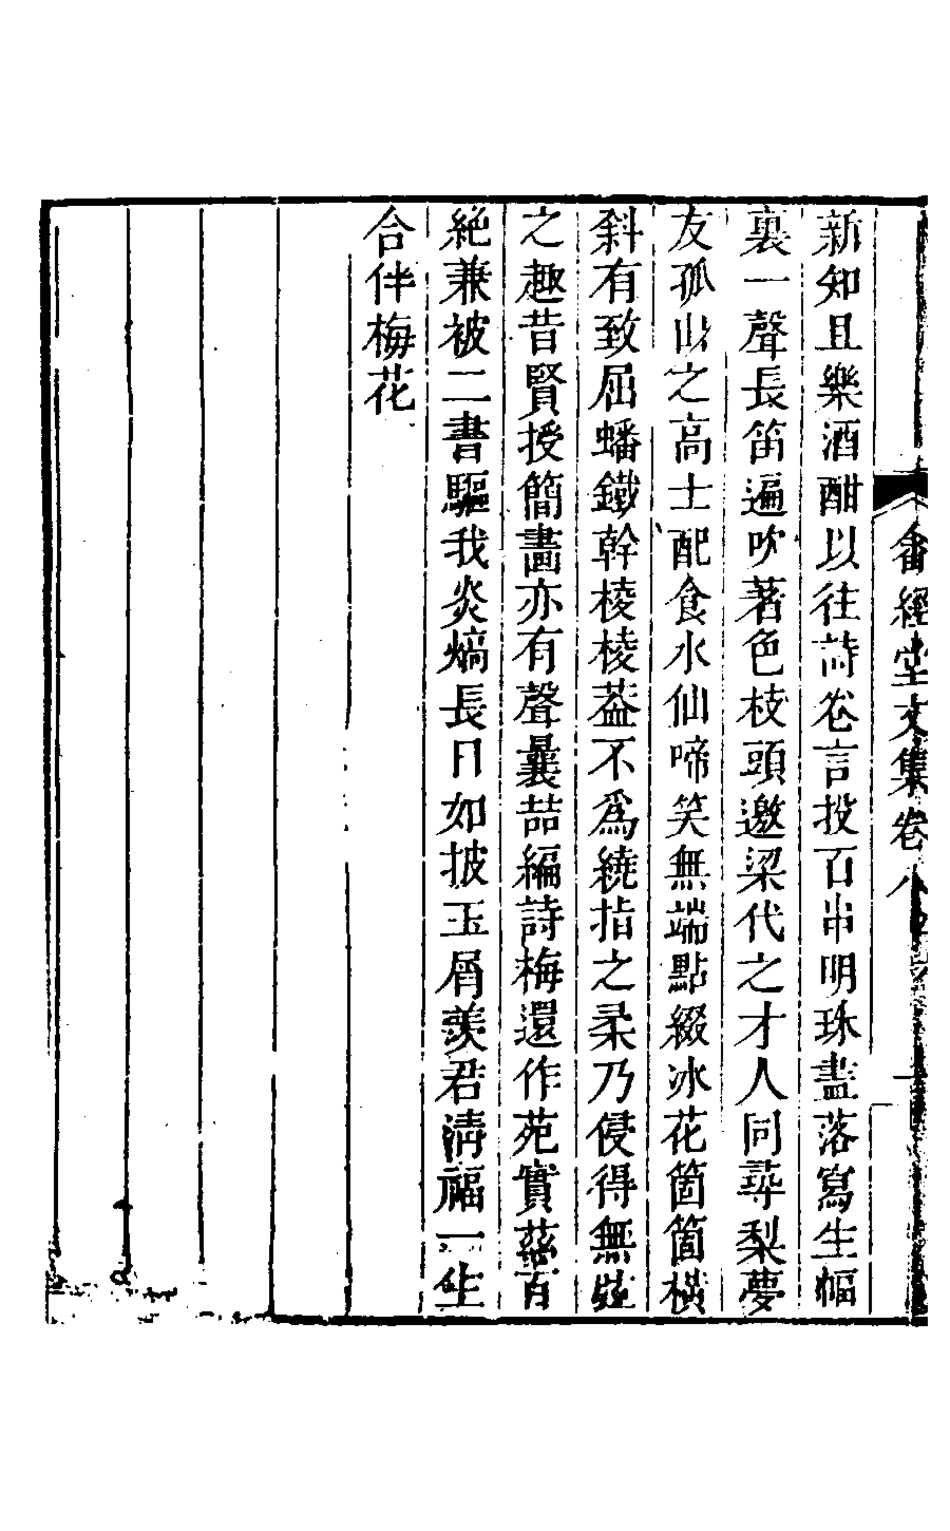 畬經堂文集卷八
新知且樂酒酣以往詩卷言投百串明珠盡落寫生幅
裏一聲長笛遍吹著色枝頭邀梁代之才人同尋梨夢
友孤山之高士配食水仙啼笑無端點綴冰花箇箇橫
斜有致屈蟠鐵幹棱棱葢不爲繞指之柔乃侵得無絃
之趣昔賢授簡畵亦有聲曩喆編詩梅還作苑實茲百
絶兼被二書驅我炎熇長日如披玉屑羨君淸福一生
合伴梅花